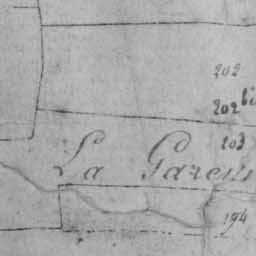 202
202 bi
203
La Garen
194